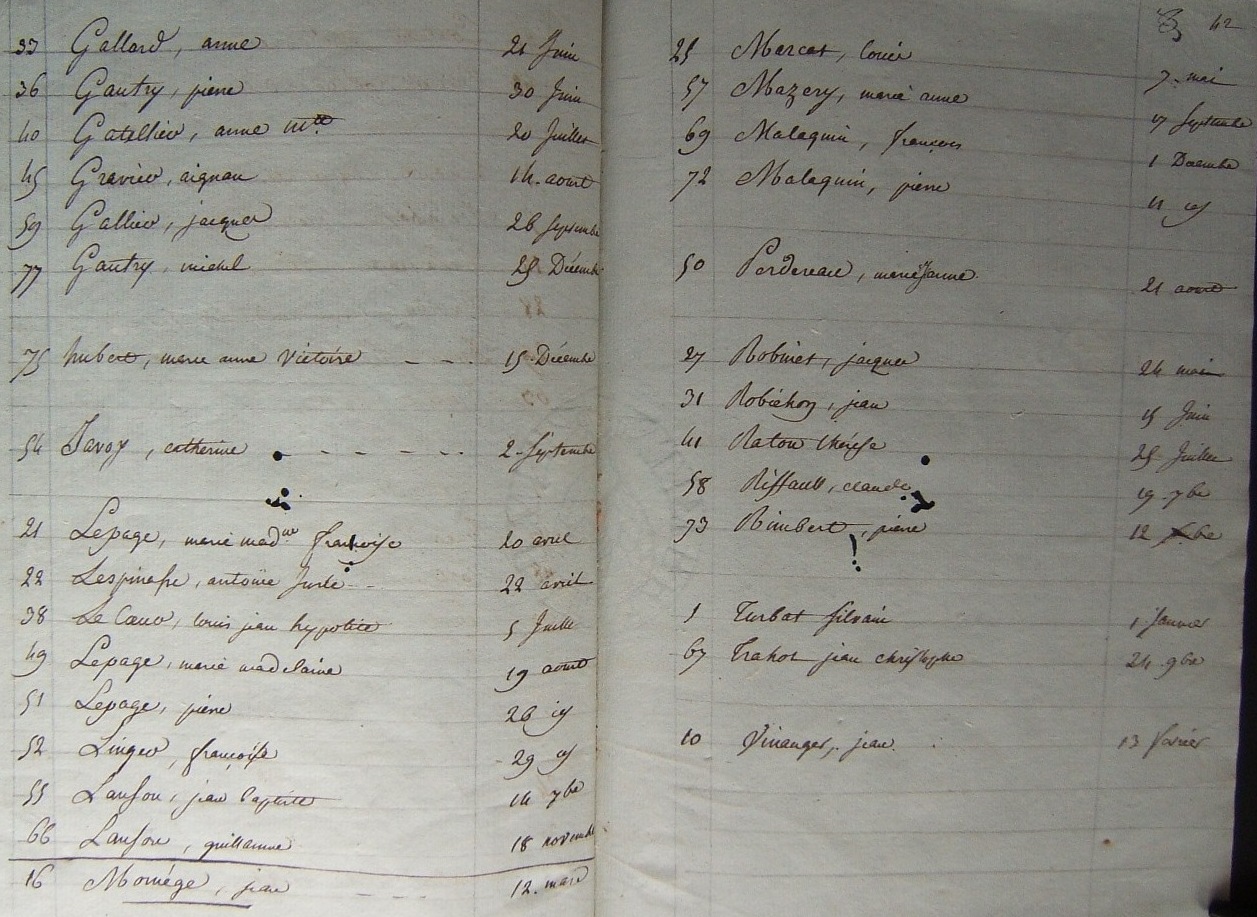 33 Gallard, anne 21 Juin
36 Gautry, pierre 30 Juin
40 Gatellier, anne 20 Juillet
45 Gravier, aignan 14. aout
59 Gallier, jacques 26 Septembre
77 Gautry, michel 25 Décembre
75 hubert, marie anne Victoire 15 Décembre
54 Javoy, catherine 2. Septembre
21 Lepage, marie mad.ne françoise 20 avril
22 Lespinasse, antoine Juste 22 avril
38 Le Cœur, louis jean hypolite 5 Juillet
49 Lepage, marie madelaine 19 aout
51 Lepage, pierre 26
52 Linger, françoise 29
55 Lanson, jean baptiste 14 7bre
66 Lanson, guillaume 18 novembre
16 Moriége, jean 12. mars
42
25 Marcat, louis 7. mai
57 Mazery, marie anne 17 Septembre
69 Malaquin, françois 1 Decembre
72 Malaquin, pierre 11
50 Perdereau, marie Jeanne 21 aout
27 Robinet, jacques 24 mai
31 Robichon, jean 15 Juin
41 Raton thérèse 25 Juillet
58 Riffault, claude 19 7bre
73 Rimbert, pierre 12
1 Turbat Silvain 1. Janvier
67 Trahot jean christophe 24. 9bre
10 Vinanger, jean 13 fevrier